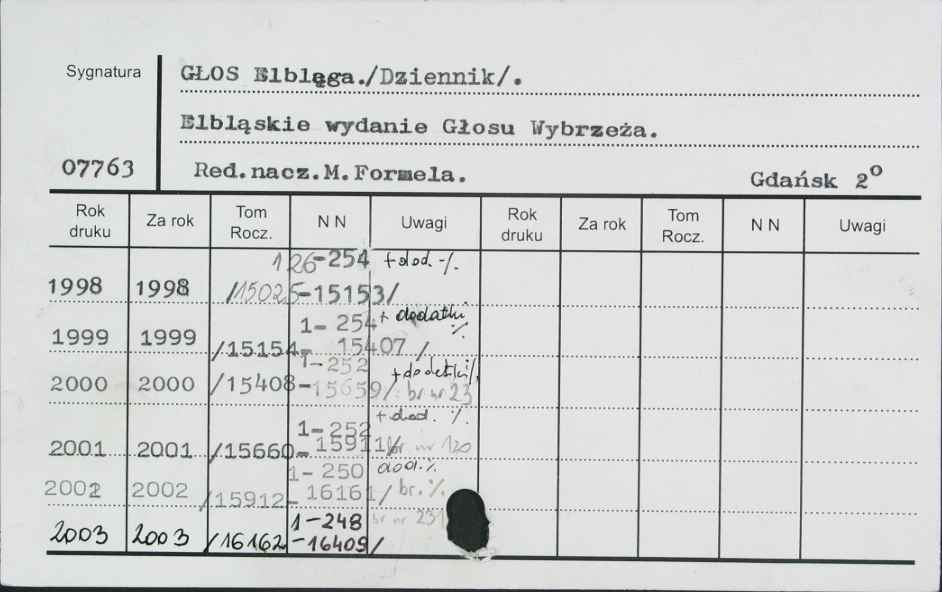 Sygnatura
GŁOS Elbląga./Dziennik/.
Elbląskie wydanie Głosu Wybrzeża.
07763
Red.nacz.M.Formela.
Gdańsk 2⁰
Rok druku Za rok Tom Rocz. N N Uwagi Rok druku Za rok Tom Rocz. N N Uwagi
126-254 + dod. -/.
1998 1998 /15025-15153/
1-254 + dodatki ./.
1999 1999 /15154-15407/
1-252 + dodatki ./.
2000 2000 /15408-15659/ br nr 23
1-252 + dod. ./.
2001 2001 /15660-15911/ br nr 120
1-250 dod. ./.
2002 2002 /15912-16161/ br. ./.
1-248 br nr 231
2003 2003 /16162-16409/